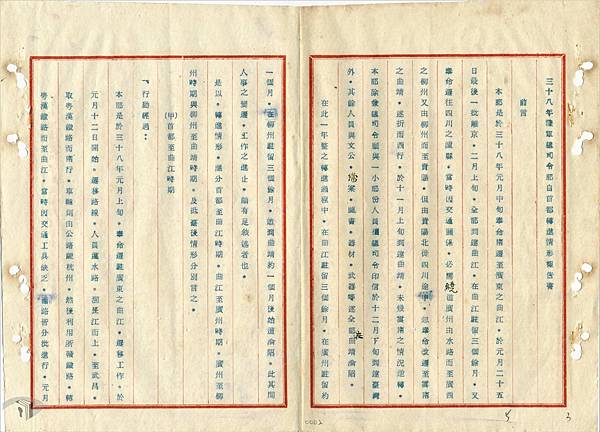 三十八年陸軍總司令部自首都轉進情形報告書
前言
本部是於三十八年元月中旬奉命南遷至廣東之曲江。於元月二十五
日最後一批離京。二月上旬。全部到達曲江。在曲江駐留三個餘月。又
奉命遷往四川之瀘縣。當時因交通關係。必需繞道廣州由水路而至廣西
之柳州又由柳州而至貴陽。但由貴陽北併四川途中。奉命改遷至雲南
之曲靖。遂折而西行。於十一月上旬到達曲靖。未幾雲南之情況逆轉。
本部除參總司令顧與一小部份人員攜總司令印信於十二月下旬到達臺灣
外。其餘人員與文公。檔案。圖書。器材。武器等遂全部曲靖淪陷。
在此一年整之轉進過程中。在曲江駐留三個餘月。在廣州駐留約
一個月。在柳州駐留三個餘月。迨到曲靖約一個月後始遭淪陷。此其間
人事之變遷。工作之進止。頗有足敘述者也。
是以。轉進情形。應分首都至曲江時期。曲江至廣州時期。廣州至柳
州時期與柳州至曲靖時期。及淪陷後情形分別言之。
一行動經過：
(甲)首都至曲江時期
本部是於三十八年元月上旬。奉命遷駐廣東之曲江。遷移工作。於
元月十二日開始。遷移路線。人員循水路。溯長江而上。至武昌。
取粵漢鐵路而南行。車輛則由公路經杭州。然後利用浙贛鐵路。轉
粵漢鐵路而至曲江。當時因交通工具缺乏。兩路皆分批進行。元月
0002
5
3